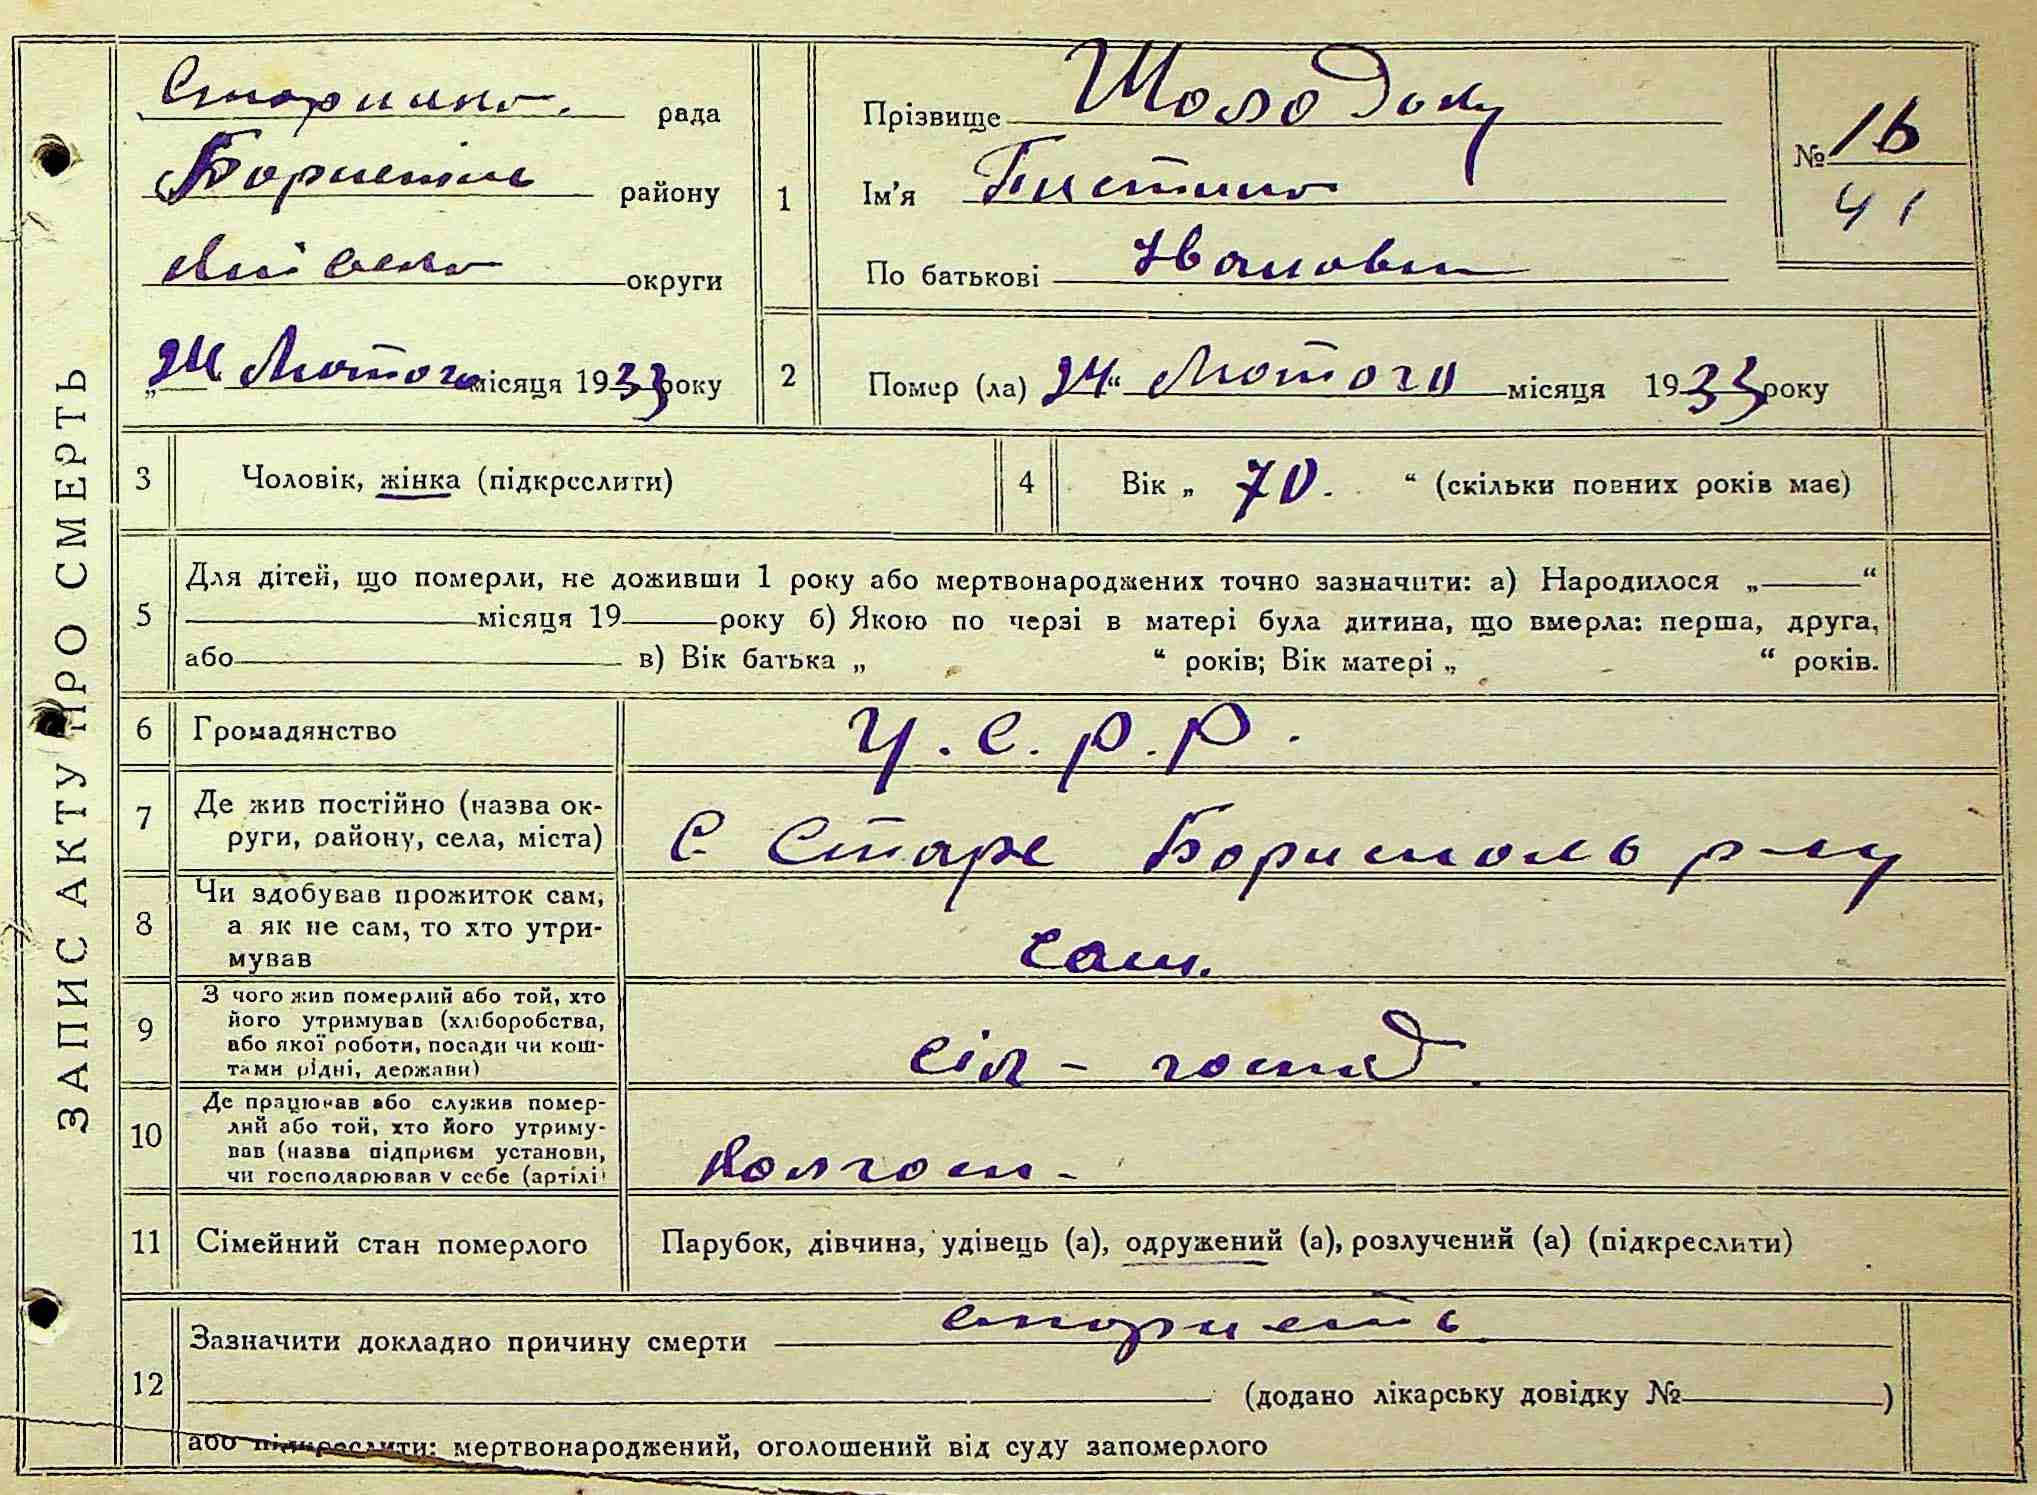 ЗАПИС АКТУ ПРО СМЕРТЬ
рада
району
округи
„24 Лютого місяця 1933 року
1
Прізвище
Ім'я
По батькові Іванови
№ 16
41
2
Помер (ла) 24“ Лютого місяця 1933 року
3
Чоловік, жінка (підкреслити)
4
Вік „ 70. “ (скільки повних років має)
5
Для дітей, що померли, не доживши 1 року або мертвонароджених точно зазначити: а) Народилося „ “
місяця 19 року б) Якою по черзі в матері була дитина, що вмерла: перша, друга,
або в) Вік батька „ “ років; Вік матері „ “ років.
6
Громадянство
У.С.Р.Р.
7
Де жив постійно (назва ок-
руги, району, села, міста)
С Старе Бориспіль р-ну
8
Чи здобував прожиток сам,
а як не сам, то хто утри-
мував
сам.
9
З чого жив померлий або той, хто
його утримував (хліборобства,
або якої роботи, посади чи кош-
тами рідні, держави)
сіл - господ.
10
Де працював або служив помер-
лий або той, хто його утриму-
вав (назва підприєм установи,
чи господарював у себе (артілі)
Колгосп -
11
Сімейний стан померлого
Парубок, дівчина, удівець (а), одружений (а), розлучений (а) (підкреслити)
12
Зазначити докладно причину смерти старисть
(додано лікарську довідку № )
або підкреслити: мертвонароджений, оголошений від суду запомерлого